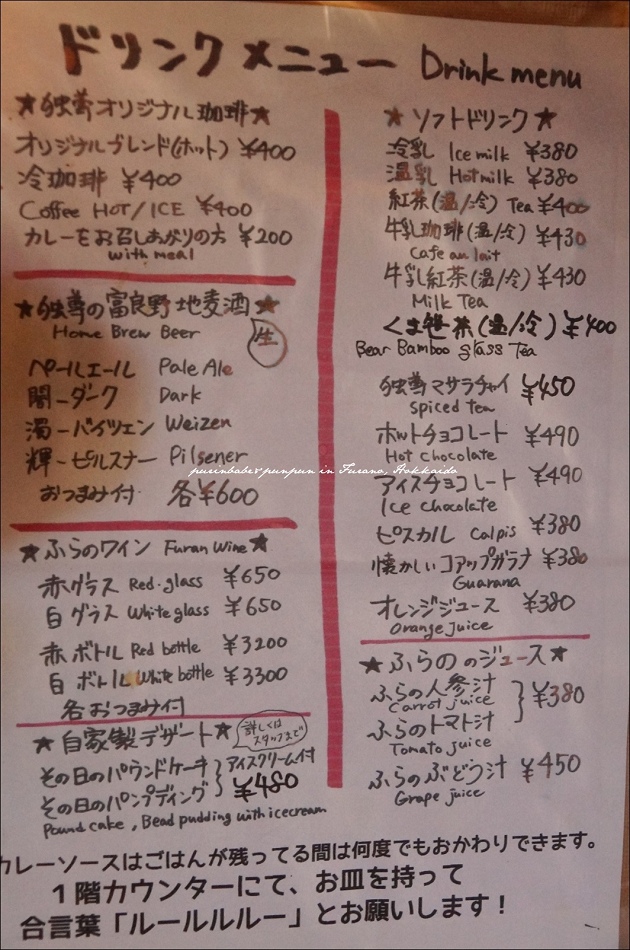 ドリンクメニュー Drink menu
★独尊オリジナル珈琲★
オリジナルブレンド(ホット) ¥400
冷珈琲 ¥400
Coffee HOT/ICE ¥400
カレーをお召しあがりの方 ¥200
with meal
★独尊の富良野地麦酒★
Home Brew Beer
生
ペールエール Pale Ale
闇-ダーク Dark
濁-バイツェン Weizen
輝-ピルスナー Pilsener
おつまみ付 各¥600
★ふらのワイン Furan Wine★
赤グラス Red・glass ¥650
白グラス White glass ¥650
赤ボトル Red bottle ¥3200
白ボトル White bottle ¥3300
各おつまみ付
★自家製デザート★
詳しくは
スタッフまで
その日のパウンドケーキ
その日のパンプディング
アイスクリーム付
¥480
Pound cake, Bead pudding with icecream
★ソフトドリンク★
冷乳 Ice milk ¥380
温乳 Hot milk ¥380
紅茶(温/冷) Tea ¥400
牛乳珈琲(温/冷) ¥430
Cafe au lait
牛乳紅茶(温/冷) ¥430
Milk Tea
くま笹茶(温/冷) ¥400
Bear Bamboo glass Tea
独尊マサラチャイ ¥450
Spiced tea
ホットチョコレート ¥490
Hot chocolate
アイスチョコレート ¥490
Ice chocolate
ピスカル Calpis ¥380
懐かしいコアップガラナ ¥380
Guarana
オレンジジュース ¥380
Orange juice
★ふらののジュース★
ふらの人参汁
Carrot juice
ふらのトマト汁
Tomato juice
¥380
ふらのぶどう汁 ¥450
Grape juice
purinbaber punpun in Furano, Hokkaido
カレーソースはごはんが残ってる間は何度でもおかわりできます。
1階カウンターにて、お皿を持って
合言葉「ルールルルー」とお願いします！